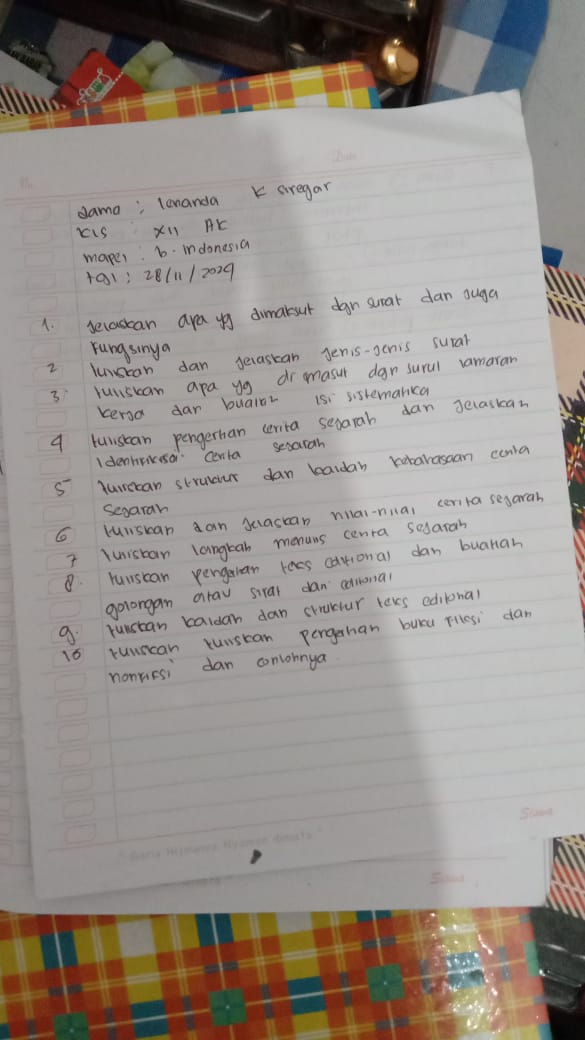 Date
Nama : lenanda K siregar
Kls : XII AK
mapel : b. indonesia
tgl : 28/11/2024
1. Jelaskan apa yg dimaksut dgn surat dan juga
Fungsinya
2 tuliskan dan jelaskan jenis-jenis surat
3. tuliskan apa yg di masut dgn surul lamaran
kerja dan buatlah isi sistematika
4 tuliskan pengertian cerita sejarah dan jelaskan
Identifikasai cerita sejarah
5 tuliskan struktur dan kaidah kebahasaan cerita
Sejarah
6 tuliskan dan jelaskan nilai-nilai cerita sejarah
7 tuliskan langkah menulis cerita sejarah
8. tuliskan pengertian teks editional dan buatlah
golongan atau sifat dan editorial
9. tuliskan kaidah dan struktur teks editorial
10 tuliskan tuliskan pengertian buku Fiksi dan
nonfiksi dan contohnya.